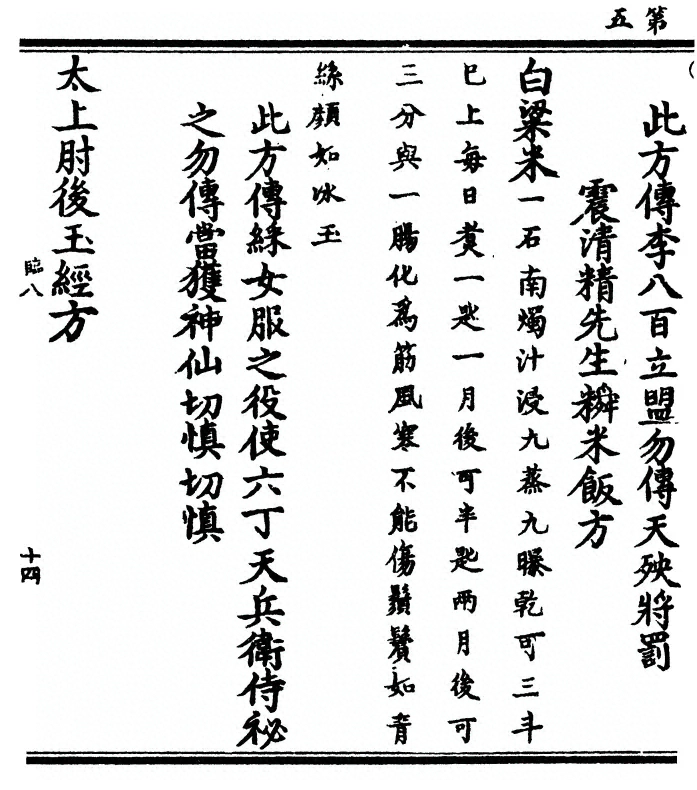 第五
此方傳李八百立盟勿傳天殃將罰
震清精先生䊳米飯方
白粱米一石南燭汁浸九蒸九曝乾可三斗
巳上每日煑一匙一月後可半匙兩月後可
三分與一腸化爲筋風寒不能傷鬚鬢如青
絲顏如冰玉
此方傳綵女服之役使六丁天兵衛侍祕
之勿傳當獲神仙切慎切慎
太上肘後玉經方
臨八
十四